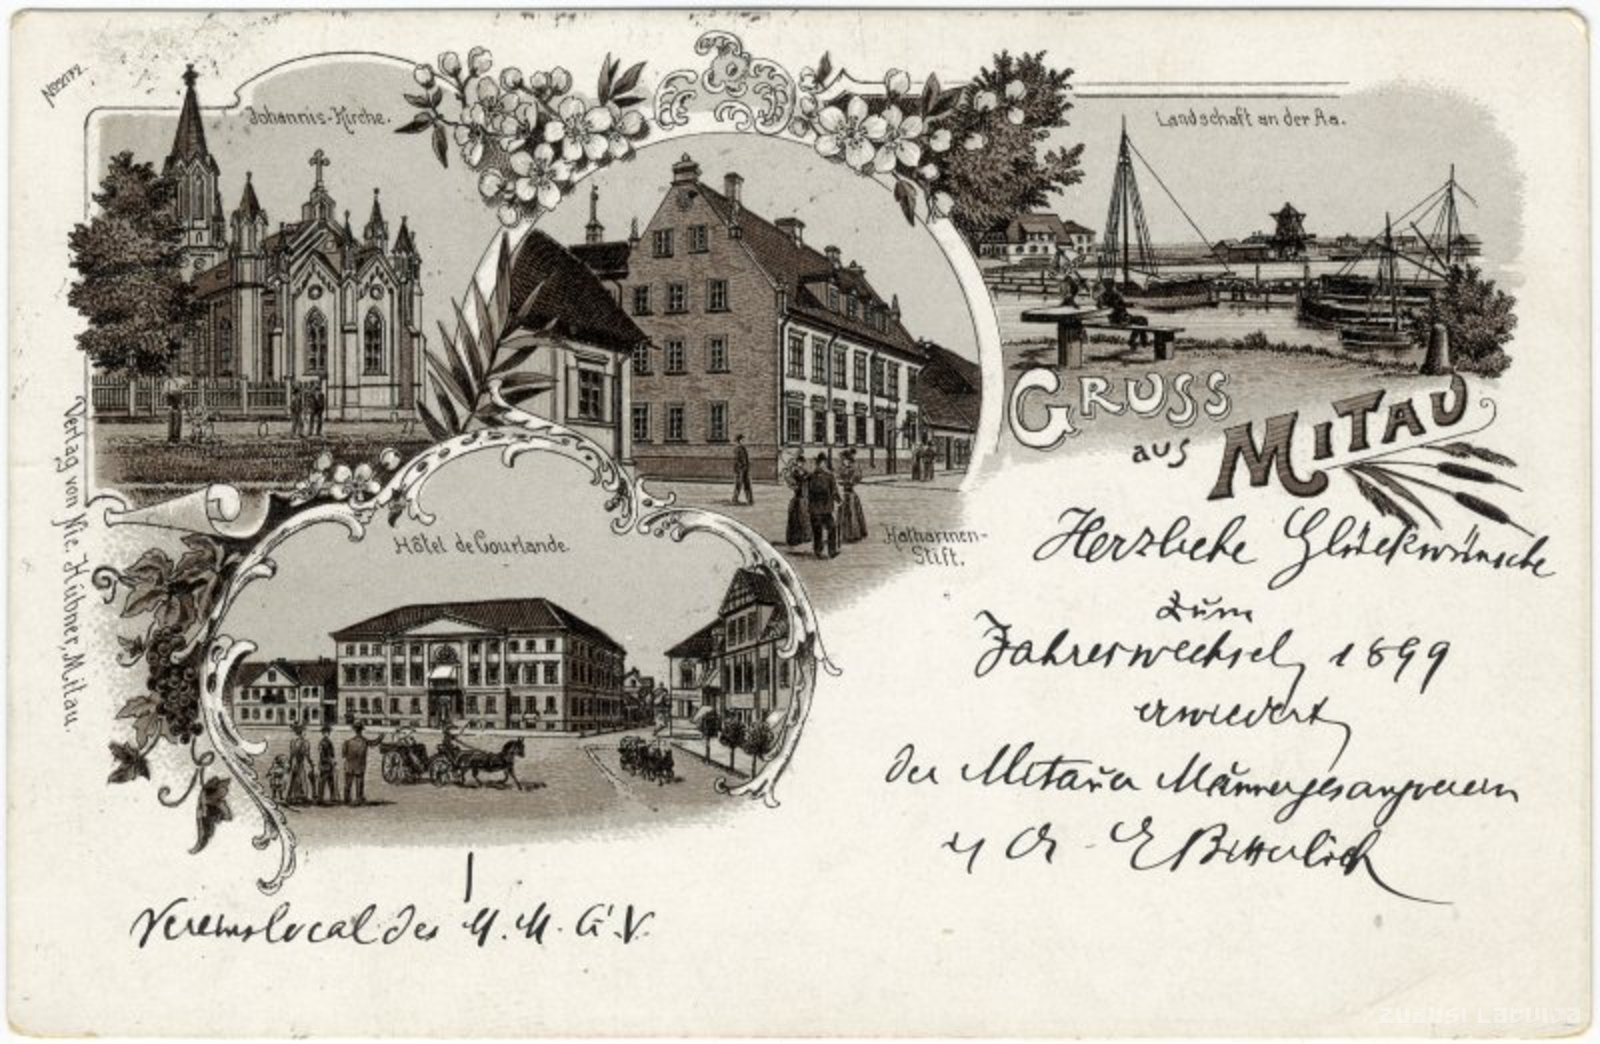 No 22172.
Johannis-Kirche.
Landschaft an der Aa.
Gruss
aus Mitau
Katharinen-
Stift.
Hôtel de Courlande.
Verlag von Nic. Hübner, Mitau.
Herzliche Glückwünsche
zum
Jahreswechsel, 1899
erwiedert
der Mitauer Männergesangverein
E Bitterlich
Vereinslocal des M. M. G. V.
Zudusi Latvija